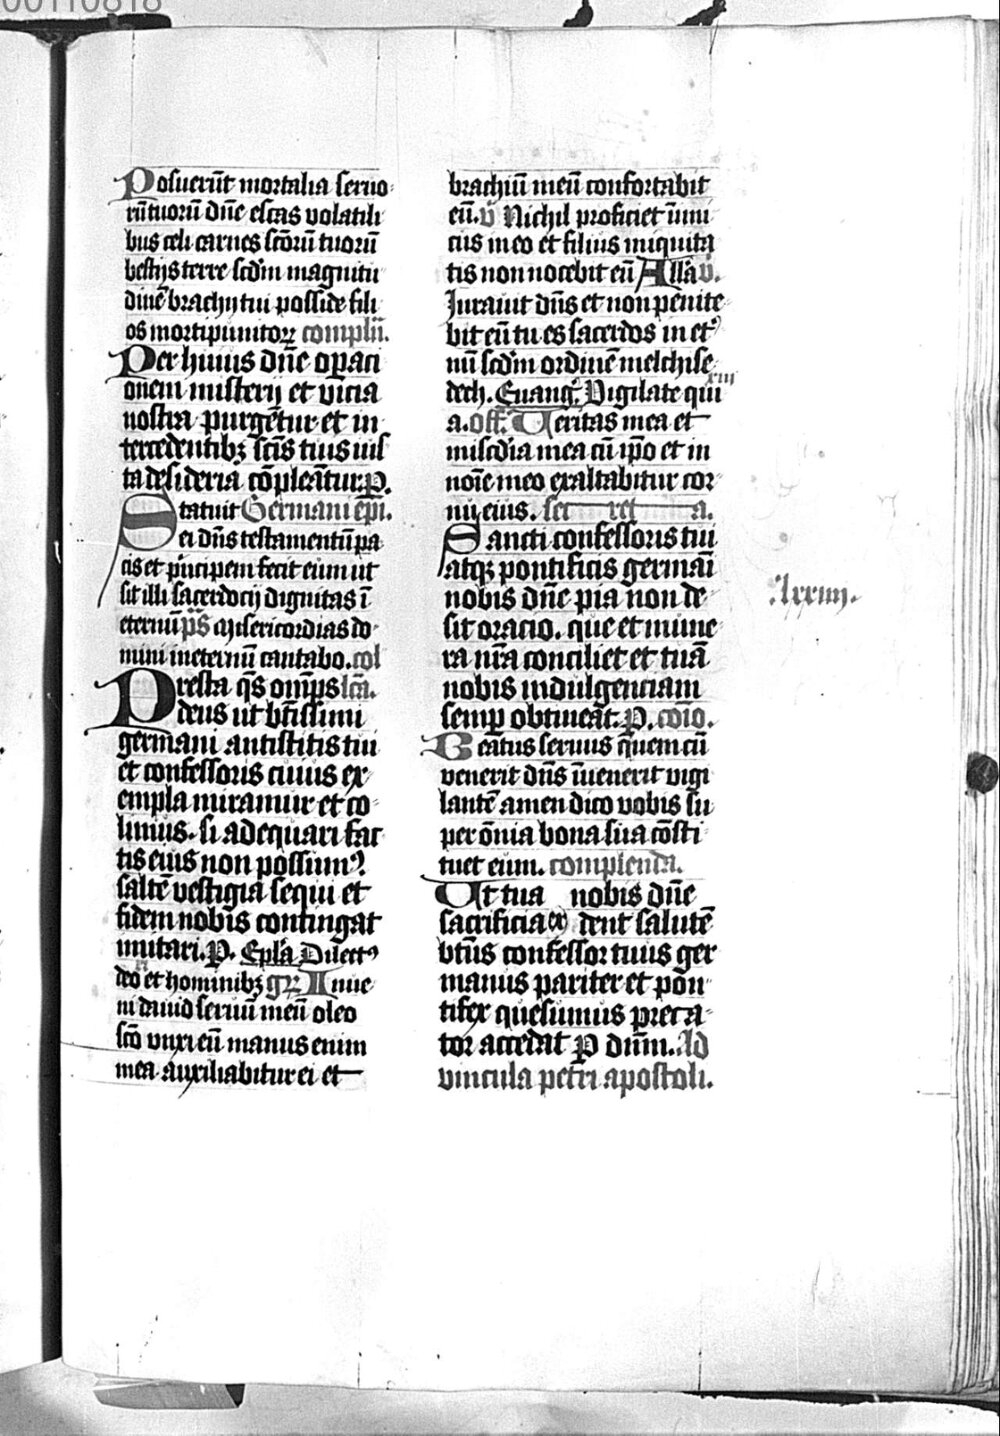 Posuerūt mortalia seruo
rūtuorū dn̄e escas volatili
bus celi carnes sc̄orū tuorū
bestijs terre scd̄m magnitu
dinē brachij tui posside fili
os mortipunitoꝝ compln̄.
Per huius dn̄e oꝑaci
onem misterij et vicia
nostra purgētur et in
tercedentibꝫ sc̄is tuis ius
ta desideria cōpleātur. P.
Statuit Germani ep̄i.
ei dn̄s testamentū pa
cis et pͥncipem fecit eum ut
sit illi sacerdocij dignitas ī
eternū p̄s Misericordias do
mini in eternū cantabo. col
Presta q̄s om̄ps lc̄a.
deus ut bt̄issimi
germani antistitis tui
et confessoris cuius ex
empla miramur et co
limus. si adequari fac
tis eius non possumꝰ
saltē vestigia sequi et
fidem nobis contingat
imitari. P. Epl̄a Dilectꝰ
deo et hominibꝫ gr̄ Inue
ni dauid seruū meū oleo
sc̄o vnxi eū manus enim
mea auxiliabitur ei et
brachiū meū confortabit
eū. v̄ Nichil proficiet inimi
cus in eo et filius iniquita
tis non nocebit eū Alla v̄.
Jurauit dn̄s et non penite
bit eū tu es sacerdos in et
nū scd̄m ordinē melchise
dech. Euang. Vigilate qui xiii
a. Off. Ueritas mea et
misc̄dia mea cū ip̄o et in
noīe meo exaltabitur cor
nu eius. sec ret a.
Sancti confessoris tui
atqꝫ pontificis germaī
nobis dn̄e pia non de
sit oracio. que et mune
ra nr̄a conciliet et tuā
nobis indulgenciam
semꝑ obtineat. P. cōio.
Beatus seruus quem cū
venerit dn̄s īuenerit vigi
lantē amen dico vobis su
per ōnia bona sua cōsti
tuet eum. complenda.
Ut tua nobis dn̄e
sacrificia dent salutē
bt̄us confessor tuus ger
manus pariter et pon
tifex quesumus preca
tor accedat P dnm̄. Ad
vincula petri apostoli.
lxxiiij.